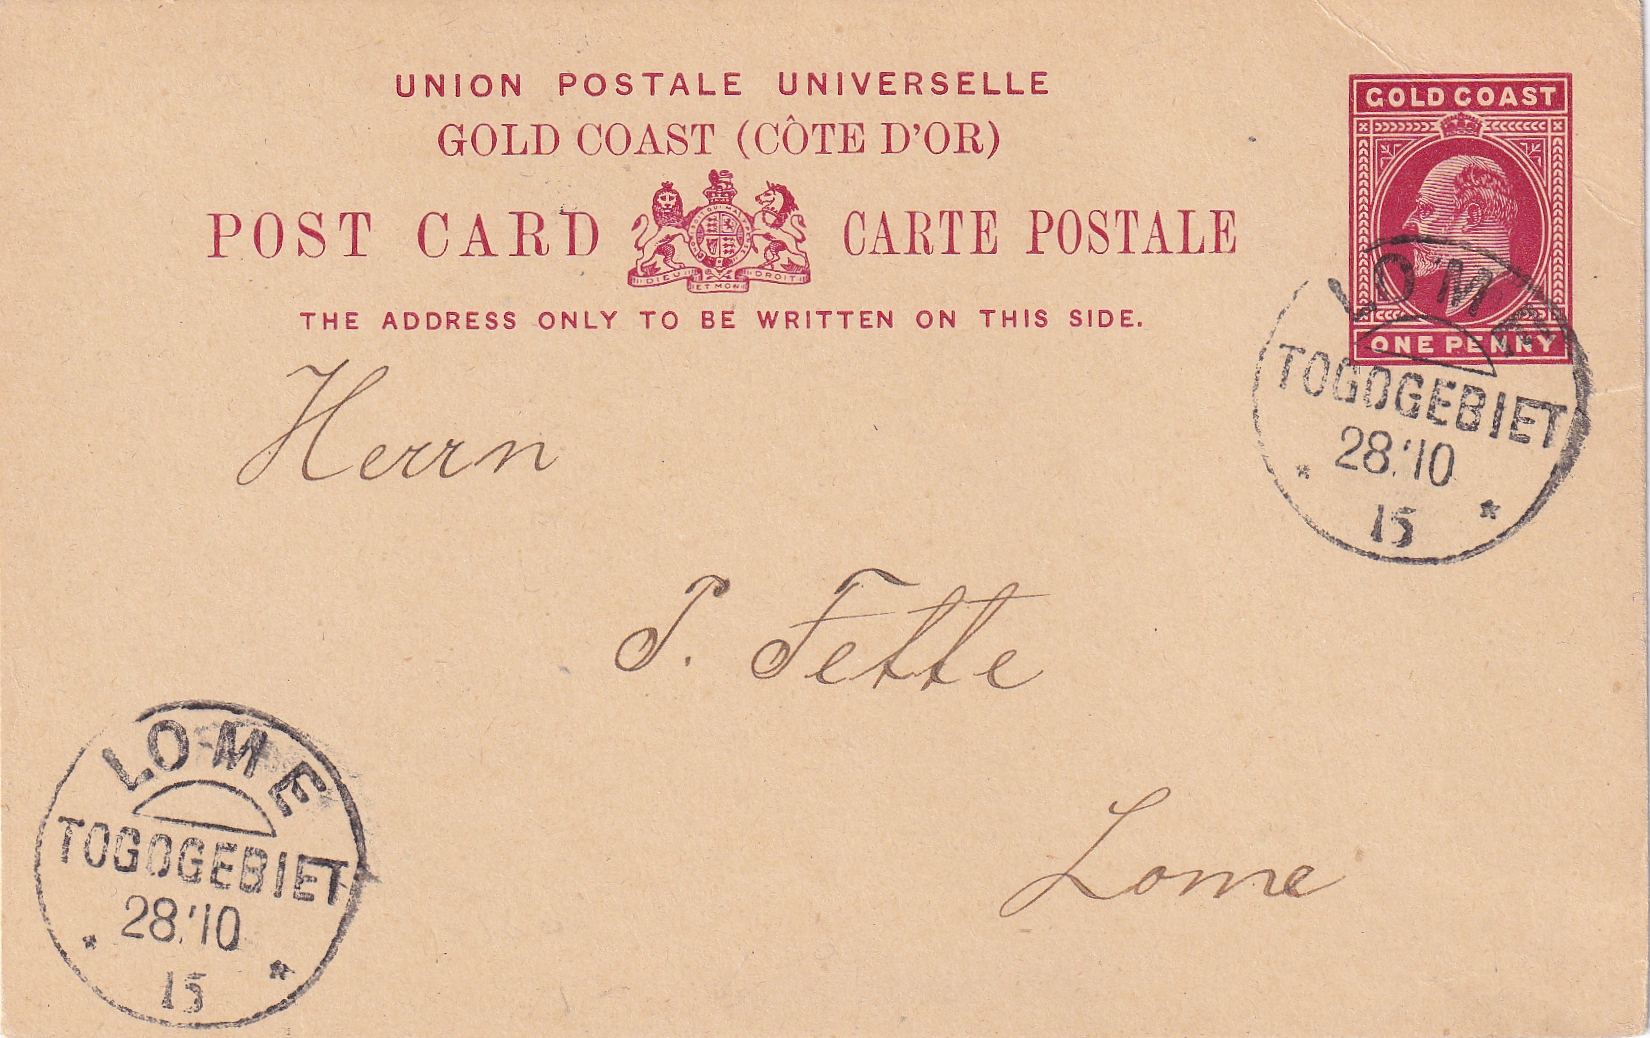 UNION POSTALE UNIVERSELLE
GOLD COAST (CÔTE D'OR)
POST CARD CARTE POSTALE
DIEU ET MON DROIT
THE ADDRESS ONLY TO BE WRITTEN ON THIS SIDE.
GOLD COAST
ONE PENNY
LOME
TOGOGEBIET
28.10
15
Herrn
P. Fette
Lome
LOME
TOGOGEBIET
28.10
15